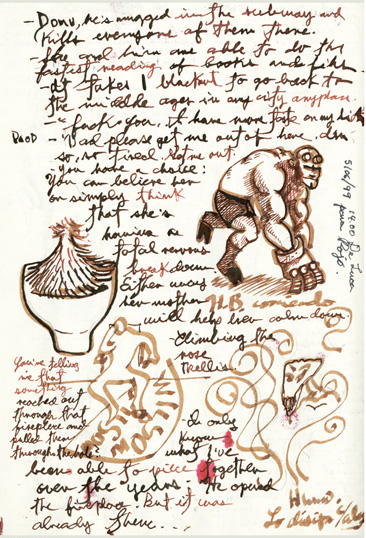 - Domo, he's mugged in the subway and
kills everyone of them there.
- She and him are able to do the
fastest reading of books and
- It takes 1 blackout to go back to
the middle ages in any city anyplace.
- " fuck you. I have more taste on my
- Dad please get me out of here. I'm
so, so tired. Let me out.
- you have a choice:
You can believe her
or simply think
that she's
having a
total nervous
breakdown
Either way
her mother
will help her calm down.
HB corriendo
5/08/99 14.00 De Luca
para
climbing the
rose
trellis.
You're telling
me that
something
reached out
through that
fireplace and
pulled them
through the hole?
- I only
know
what I've
been able to piece together
over the years. He opened
the fireplace. But it was
already there...
Humo.